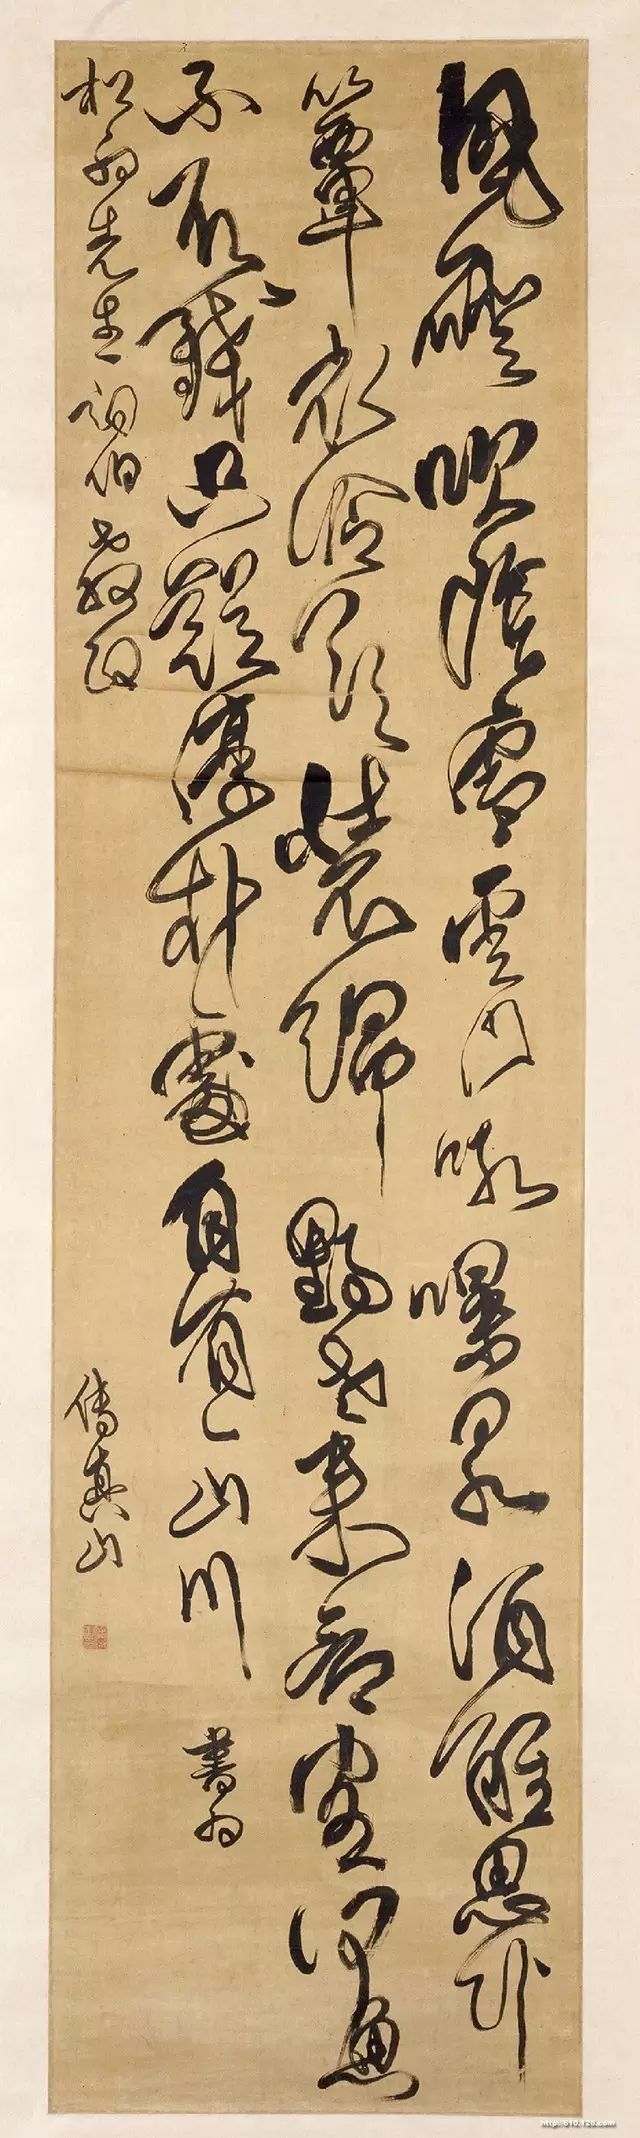 風磴吹陰雪雲門吼瀑泉酒醒思臥
簟衣冷欲裝綿野老來看客河魚
不取錢只疑淳朴處自有一山川 書為
松先生詞伯教正 傅真山